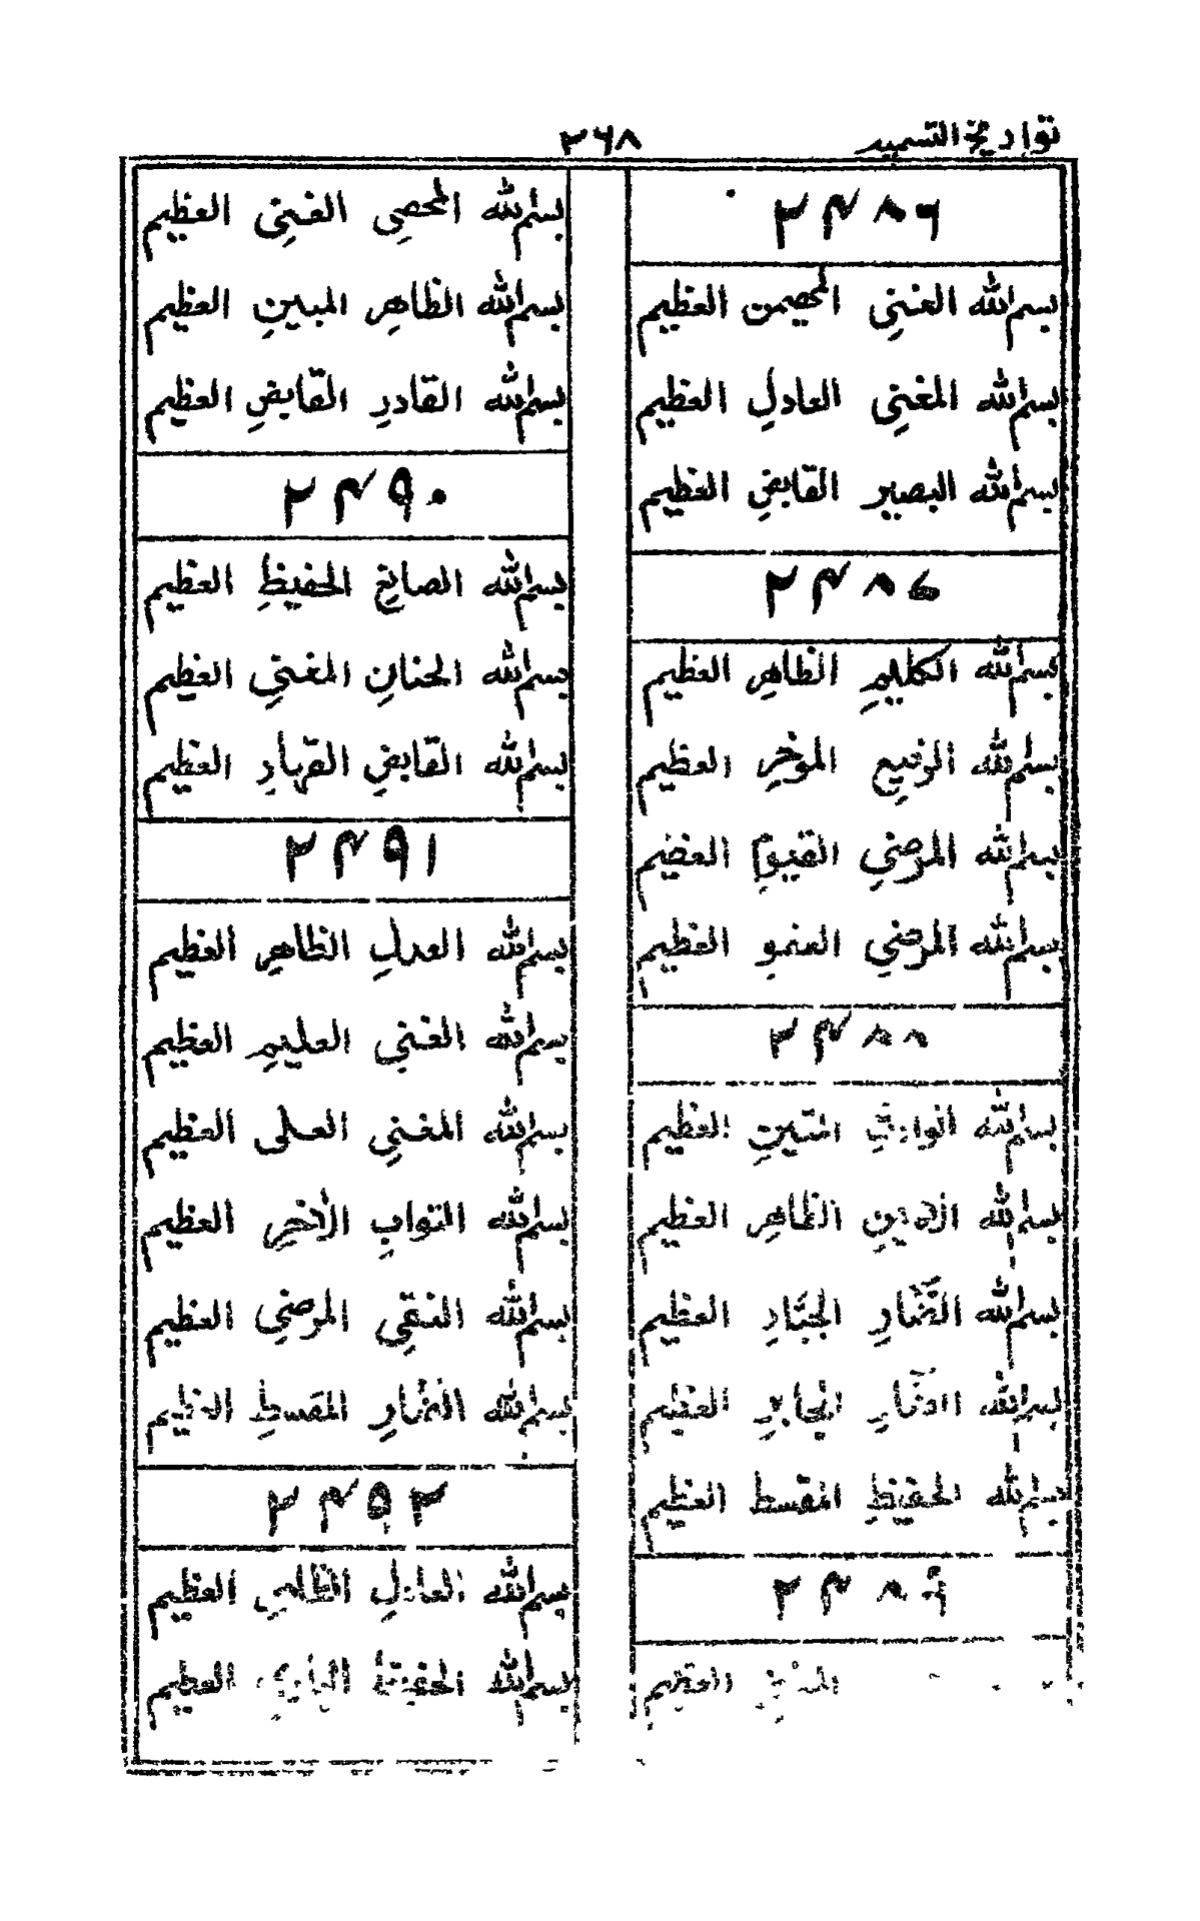 تواريخ التسميه
۲۶۸
۲۴۸۶
بسم الله الغني المهيمن العظيم
بسم الله المغني العادل العظيم
بسم الله البصير القابض العظيم
۲۴۸۷
بسم الله الكليم الظاهر العظيم
بسم الله الرفيع الموخر العظيم
بسم الله المرضي القيوم العظيم
بسم الله المرضي العظيم
۲۴۸۸
بسم الله المتين العظيم
بسم الله الظاهر العظيم
بسم الله الجبّار العظيم
بسم الله الجابر العظيم
بسم الله الحفيظ المقسط العظيم
۲۴۸۹
العظيم
بسم الله المحصي الغني العظيم
بسم الله الظاهر المبين العظيم
بسم الله القادر القابض العظيم
۲۴۹۰
بسم الله الصانع الحفيظ العظيم
بسم الله الحنان المغني العظيم
بسم الله القابض القهار العظيم
۲۴۹۱
بسم الله العدل الظاهر العظيم
بسم الله الغني العليم العظيم
بسم الله المغني العلى العظيم
بسم الله التواب الآخر العظيم
بسم الله النقي المرضي العظيم
بسم الله المقسط العظيم
۲۴۹۲
بسم الله العادل الظاهر العظيم
بسم الله العظيم